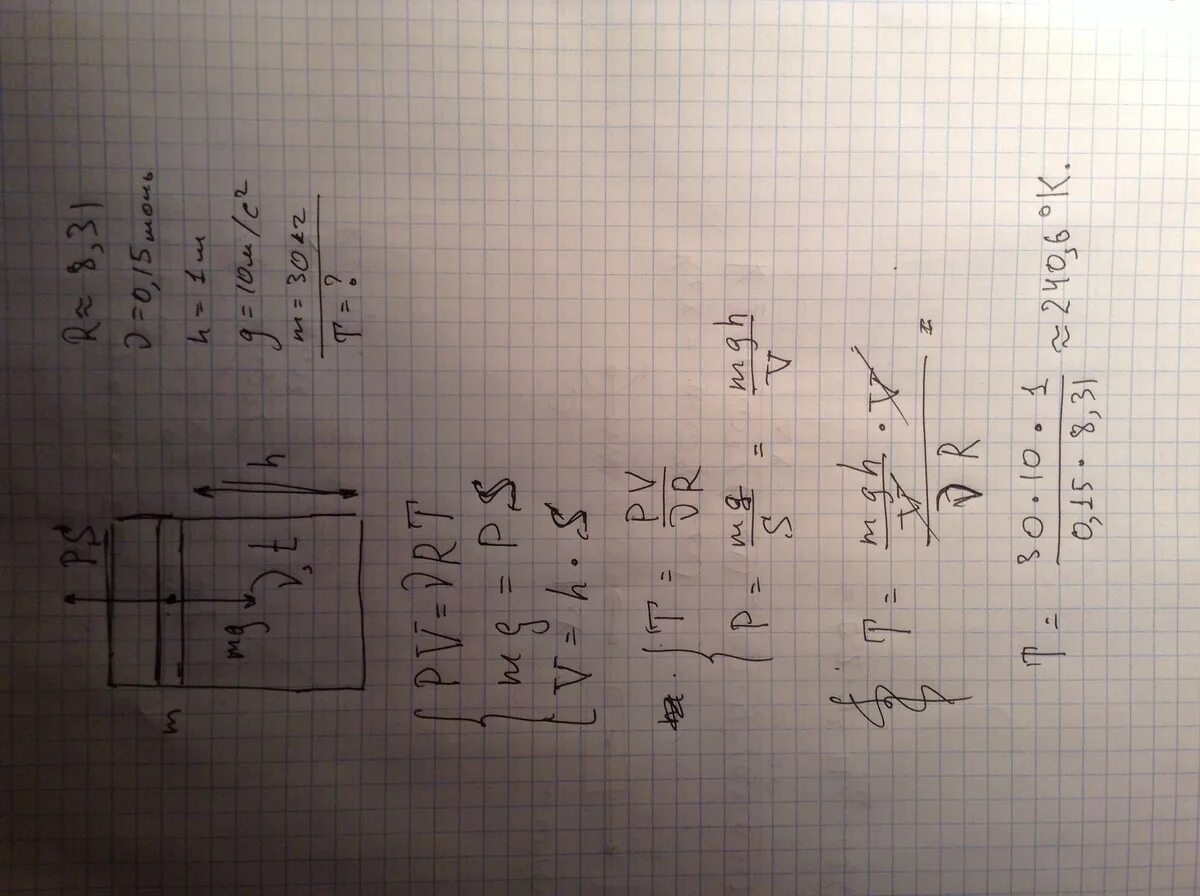 PS
m
mg
ν, t
h
R ≈ 8,31
ν = 0,15 моль
h = 1 м
g = 10 м/с²
m = 30 кг
T = ?
PV = νRT
mg = PS
V = h · S
T = PV/νR
P = mg/S = mgh/V
T = mgh/V · V / νR =
T = 30 · 10 · 1 / 0,15 · 8,31 ≈ 240,6 °K.